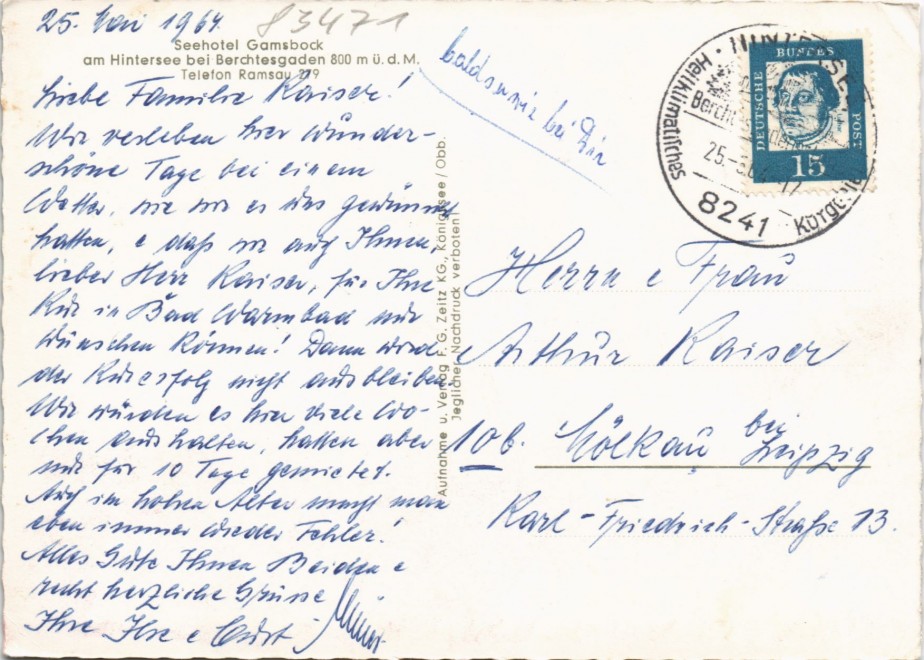 25. Mai 1964.
83471
Seehotel Gamsbock
am Hintersee bei Berchtesgaden 800 m ü. d. M.
Telefon Ramsau 279
Liebe Familie Kaiser!
Wir verleben hier wunder-
schöne Tage bei einem
Wetter, wie wir es uns gewünscht
hatten, e daß wir auch Ihnen,
lieber Herr Kaiser, für Ihre
Kur in Bad Warmbad nur
wünschen können! Dann wird
der Kurerfolg nicht ausbleiben.
Wir würden es hier viele Wo-
chen aushalten, hatten aber
nur für 10 Tage gemietet.
Auch im hohen Alter macht man
eben immer wieder Fehler!
Alles Gute Ihnen Beiden e
recht herzliche Grüsse
Ihre Ilse e Curt
bei
Aufnahme u. Verlag F. G. Zeitz KG., Königssee / Obb.
Jeglicher Nachdruck verboten
HINTERSEE
Heilklimatisches
Kurgebiet
25.
8241
DEUTSCHE
BUNDES
POST
15
Herrn e Frau
Arthur Kaiser
10b. Mölkau bei
Leipzig
Karl-Friedrich-Straße 13.